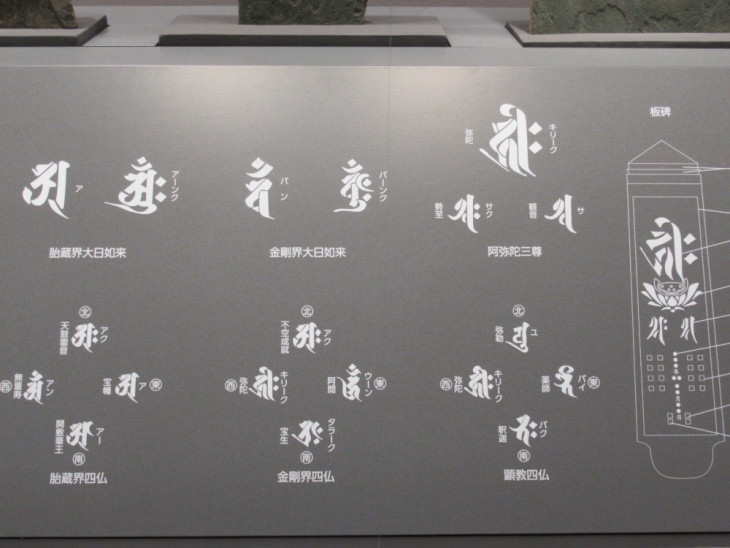 ア
アーンク
胎蔵界大日如来
バン
バーンク
金剛界大日如来
弥陀
キリーク
勢至
サク
観音
サ
阿弥陀三尊
板碑
北
天鼓雷音
アク
西
無量寿
アン
宝幢
ア
東
開敷華王
アー
南
胎蔵界四仏
北
不空成就
アク
西
弥陀
キリーク
阿閦
ウーン
東
宝生
タラーク
南
金剛界四仏
北
弥勒
ユ
西
弥陀
キリーク
薬師
バイ
東
釈迦
バク
南
顕教四仏